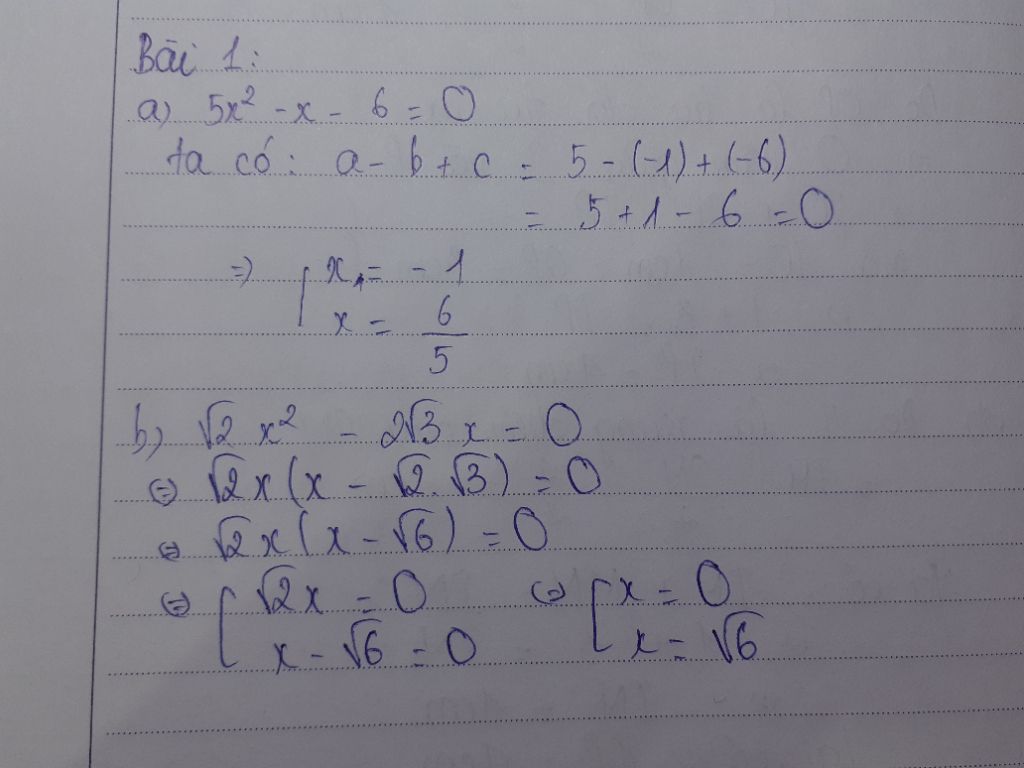 Bài 1:
a) 5x² - x - 6 = 0
ta có: a - b + c = 5 - (-1) + (-6)
= 5 + 1 - 6 = 0
=> [ x₁ = -1
x = 6/5
b) √2 x² - 2√3 x = 0
<=> √2x(x - √2.√3) = 0
<=> √2x(x - √6) = 0
<=> [ √2x = 0 <=> [ x = 0
x - √6 = 0 x = √6